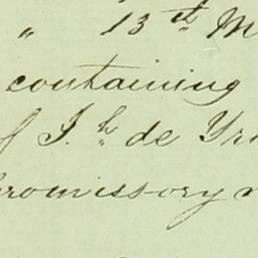 " 13th M
containing
of J.h de Yr
romissory